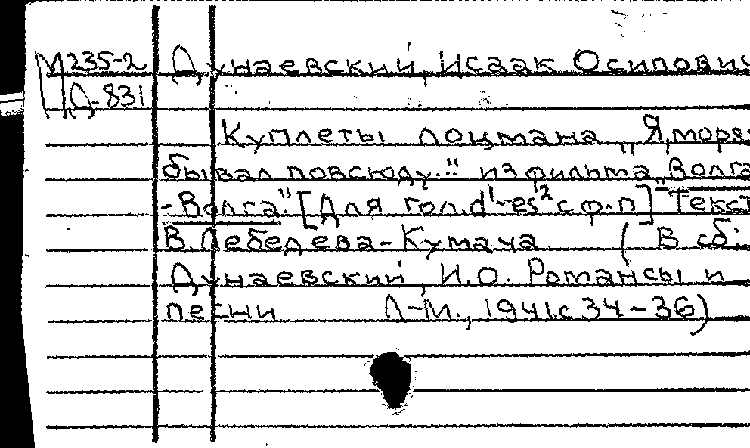 М235-2 Дунаевский, Исаак Осипович
Д-831
Куплеты лоцмана „Я, моряк,
бывал повсюду..." из фильма „Волга
-Волга". [Для гол. d¹-es² с ф-п] Текст
В. Лебедева-Кумача (В сб.:
Дунаевский, И.О. Романсы и
песни Л-М., 1941. с 34-36)